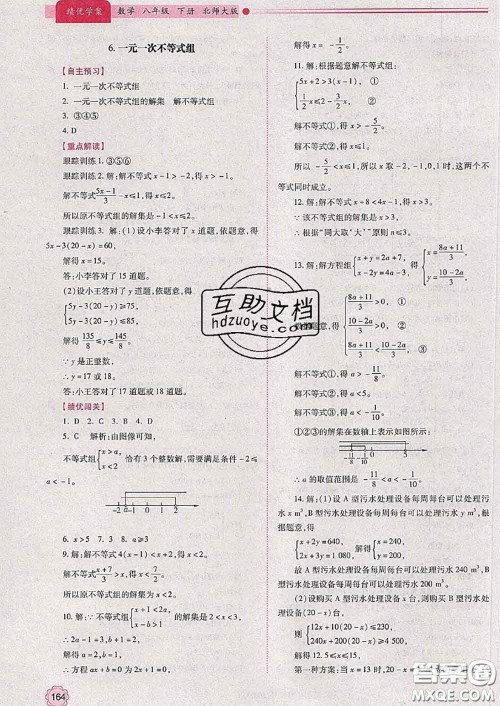 绩优学案 数学 八年级 下册 北师大版
6. 一元一次不等式组
【自主预习】
1. 一元一次不等式组
2. 一元一次不等式组的解集 解不等式组
3. ③④⑤
4. D
【重点解读】
跟踪训练 1. ①③⑥
跟踪训练 2. 解:解不等式 -3x+1<4,得 x>-1.
解不等式
所以原不等式组的解集是 -1<x≤2.
跟踪训练 3. 解:(1)设小李答对了 x 道题,依题意,得
5x-3(20-x)=60,
解得 x=15.
答:小李答对了 15 道题.
(2)设小王答对了 y 道题,依题意,得
{5y-3(20-y)≥75,
5y-3(20-y)≤85,
解得 135/8≤y≤145/8.
∵y 是正整数,
∴y=17 或 18.
答:小王答对了 17 道题或 18 道题.
【绩优闯关】
1. D 2. C 3. B 4. D
5. C 解析:由图像可知,
不等式组{x>a, x<1 恰有 3 个整数解,需要满足条件 -2≤
a<-1.
-2 a -1 0 1
6. x>5 7. 3 8. a≥2
9. 解:解不等式 4(x-1)<x+2,得 x<2.
解不等式 (x+7)/3>x,得 x<7/2.
所以原不等式组的解集为 x<2.
10. 解:∵不等式组{x+1<2a, x-b>1 的解集是 2<x<3,
∴2a-1=3,b+1=2,
∴a=2,b=1,
∴方程 ax+b=0 为 2x+1=0,
解得 x=-1/2.
11. 解:根据题意解不等式组,得
{5x+2>3(x-1), ①
1/2x≤2-3/2x, ②
解不等式①,得 x>-5/2.
解不等式②,得 x≤1.
所以 -5/2<x≤1,故 x 取 -2,-1,0,1 时,这两个不
等式同时成立.
12. 解:解不等式 x+8<4x-1,得 x>3.
∵该不等式组的解集是 x>3,
∴根据“同大取‘大’”原则,n≤3.
13. 解:解方程组{x+y=2a+7, x-2y=4a-3, 得{x=(8a+11)/3, y=(10-2a)/3.
根据题意,得{(8a+11)/3>0, ① (10-2a)/3>0, ②
解不等式①,得 a>-11/8.
解不等式②,得 a<5.
解不等式③,得 a<-1/10.
①②③的解集在数轴上表示如图所示.
-11/8 -1/10 5
∴a 的取值范围是 -11/8<a<-1/10.
14. 解:(1)设 A 型污水处理设备每周每台可以处理污
水 x m³,B 型污水处理设备每周每台可以处理污水 y m³,根
据题意,得
{x+2y=640,
2x+3y=1080,
故 A 型污水处理设备每周每台可以处理污水 240 m³,B
型污水处理设备每周每台可以处理污水 200 m³.
(2)设购买 A 型污水处理设备 x 台,则购买 B 型污水处
理设备 (20-x) 台,
则{12x+10(20-x)≤230,
240x+200(20-x)≥4500,
解得 12.5≤x≤15.
第一种方案:当 x=13 时,20-x=7,
164
互助文档
hdzuoye.com
答案圈
MXQE.COM